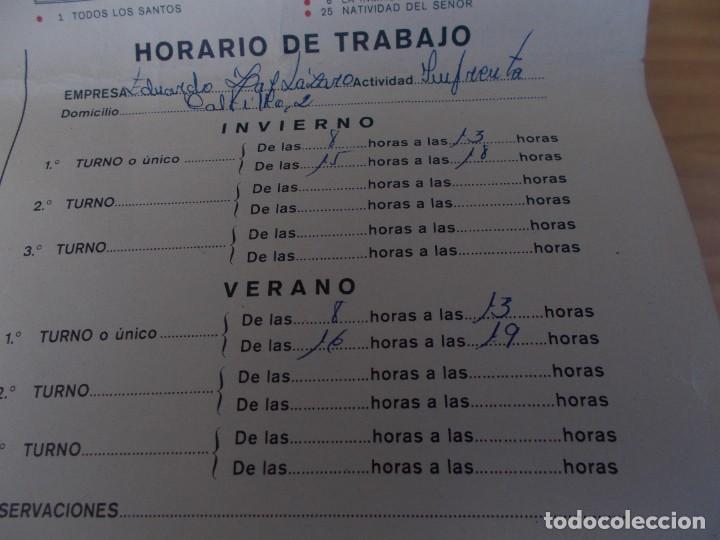 1 TODOS LOS SANTOS
25 NATIVIDAD DEL SEÑOR
HORARIO DE TRABAJO
EMPRESA Eduardo Lázaro Actividad Imprenta
Domicilio
INVIERNO
1.º TURNO o único De las 8 horas a las 13 horas
De las 15 horas a las 18 horas
2.º TURNO De las horas a las horas
De las horas a las horas
3.º TURNO De las horas a las horas
De las horas a las horas
VERANO
1.º TURNO o único De las 8 horas a las 13 horas
De las 16 horas a las 19 horas
2.º TURNO De las horas a las horas
De las horas a las horas
º TURNO De las horas a las horas
De las horas a las horas
SERVACIONES
todocoleccion.net